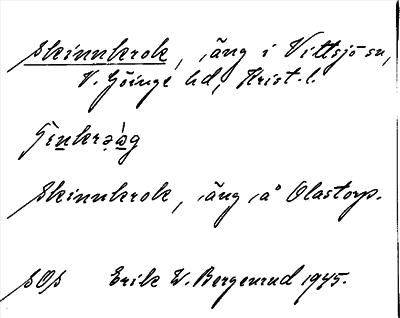 Skinnkrok, äng i Vittsjö sn,
V. Göinge hd, Krist. l.
Skinnkrok, äng å Olastorp.
SOS Erik W. Bergenrud 1945.